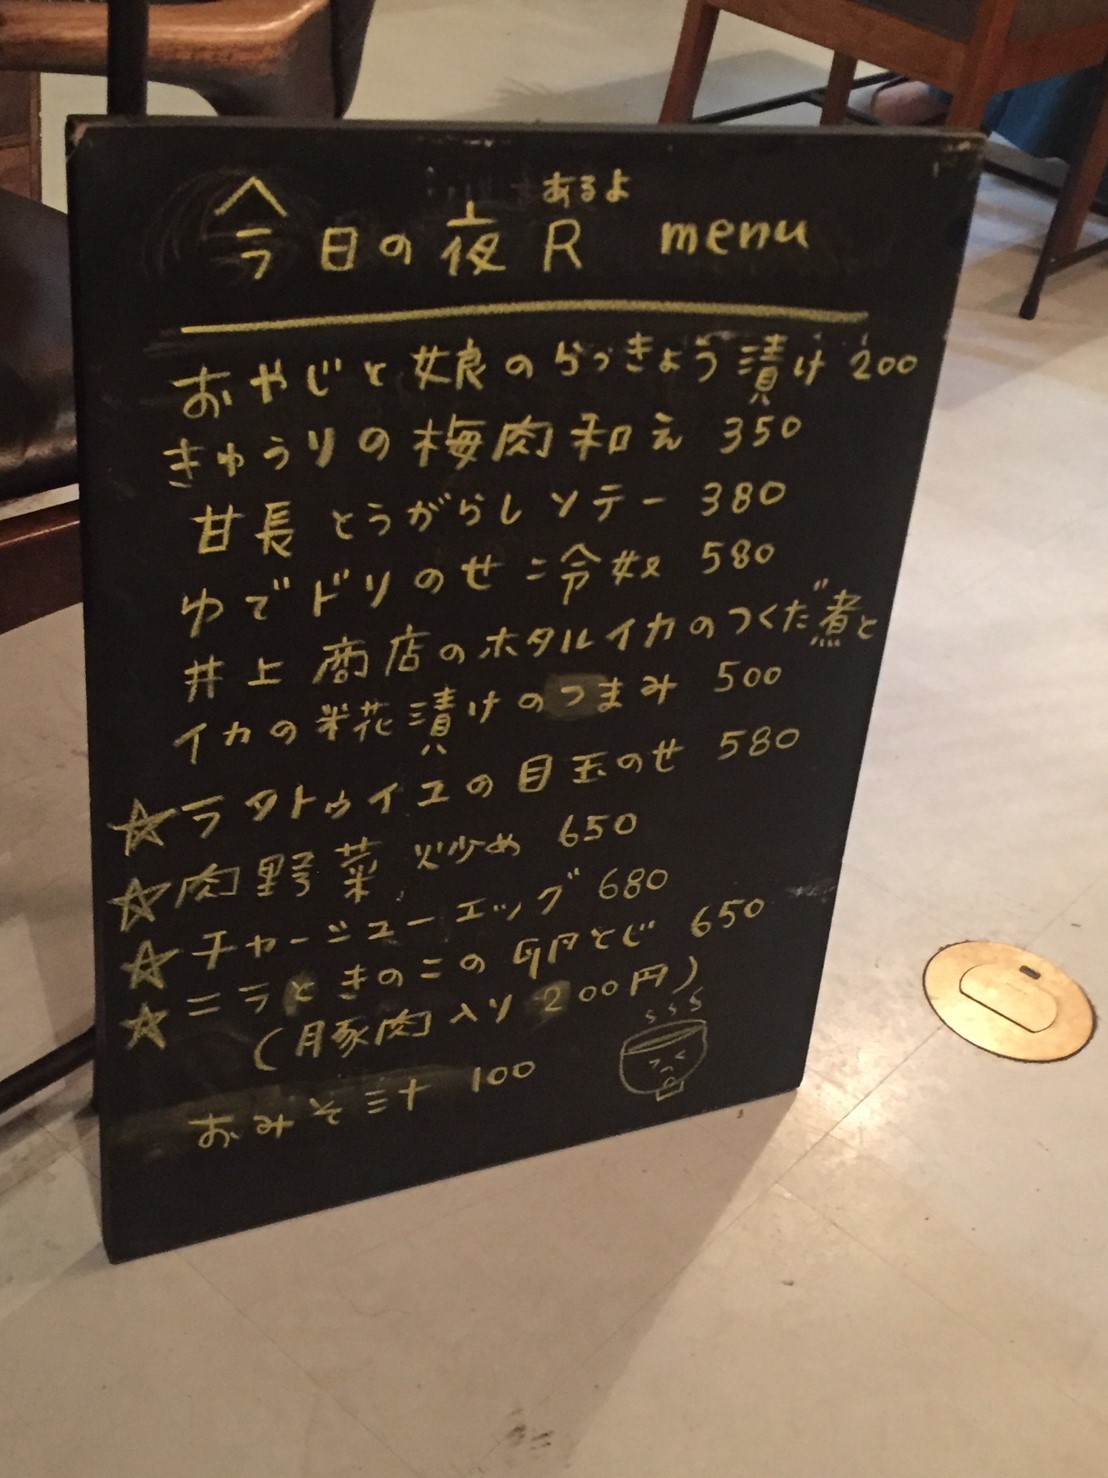 あるよ
今日の夜R menu
おやじと娘のらっきょう漬け 200
きゅうりの梅肉和え 350
甘長とうがらしソテー 380
ゆでドリのせ冷奴 580
井上商店のホタルイカのつくだ煮と
イカの糀漬けのつまみ 500
☆ラタトゥイユの目玉のせ 580
☆肉野菜炒め 650
☆チャーシューエッグ 680
☆ニラときのこの卵とじ 650
(豚肉入り 200円)
おみそ汁 100